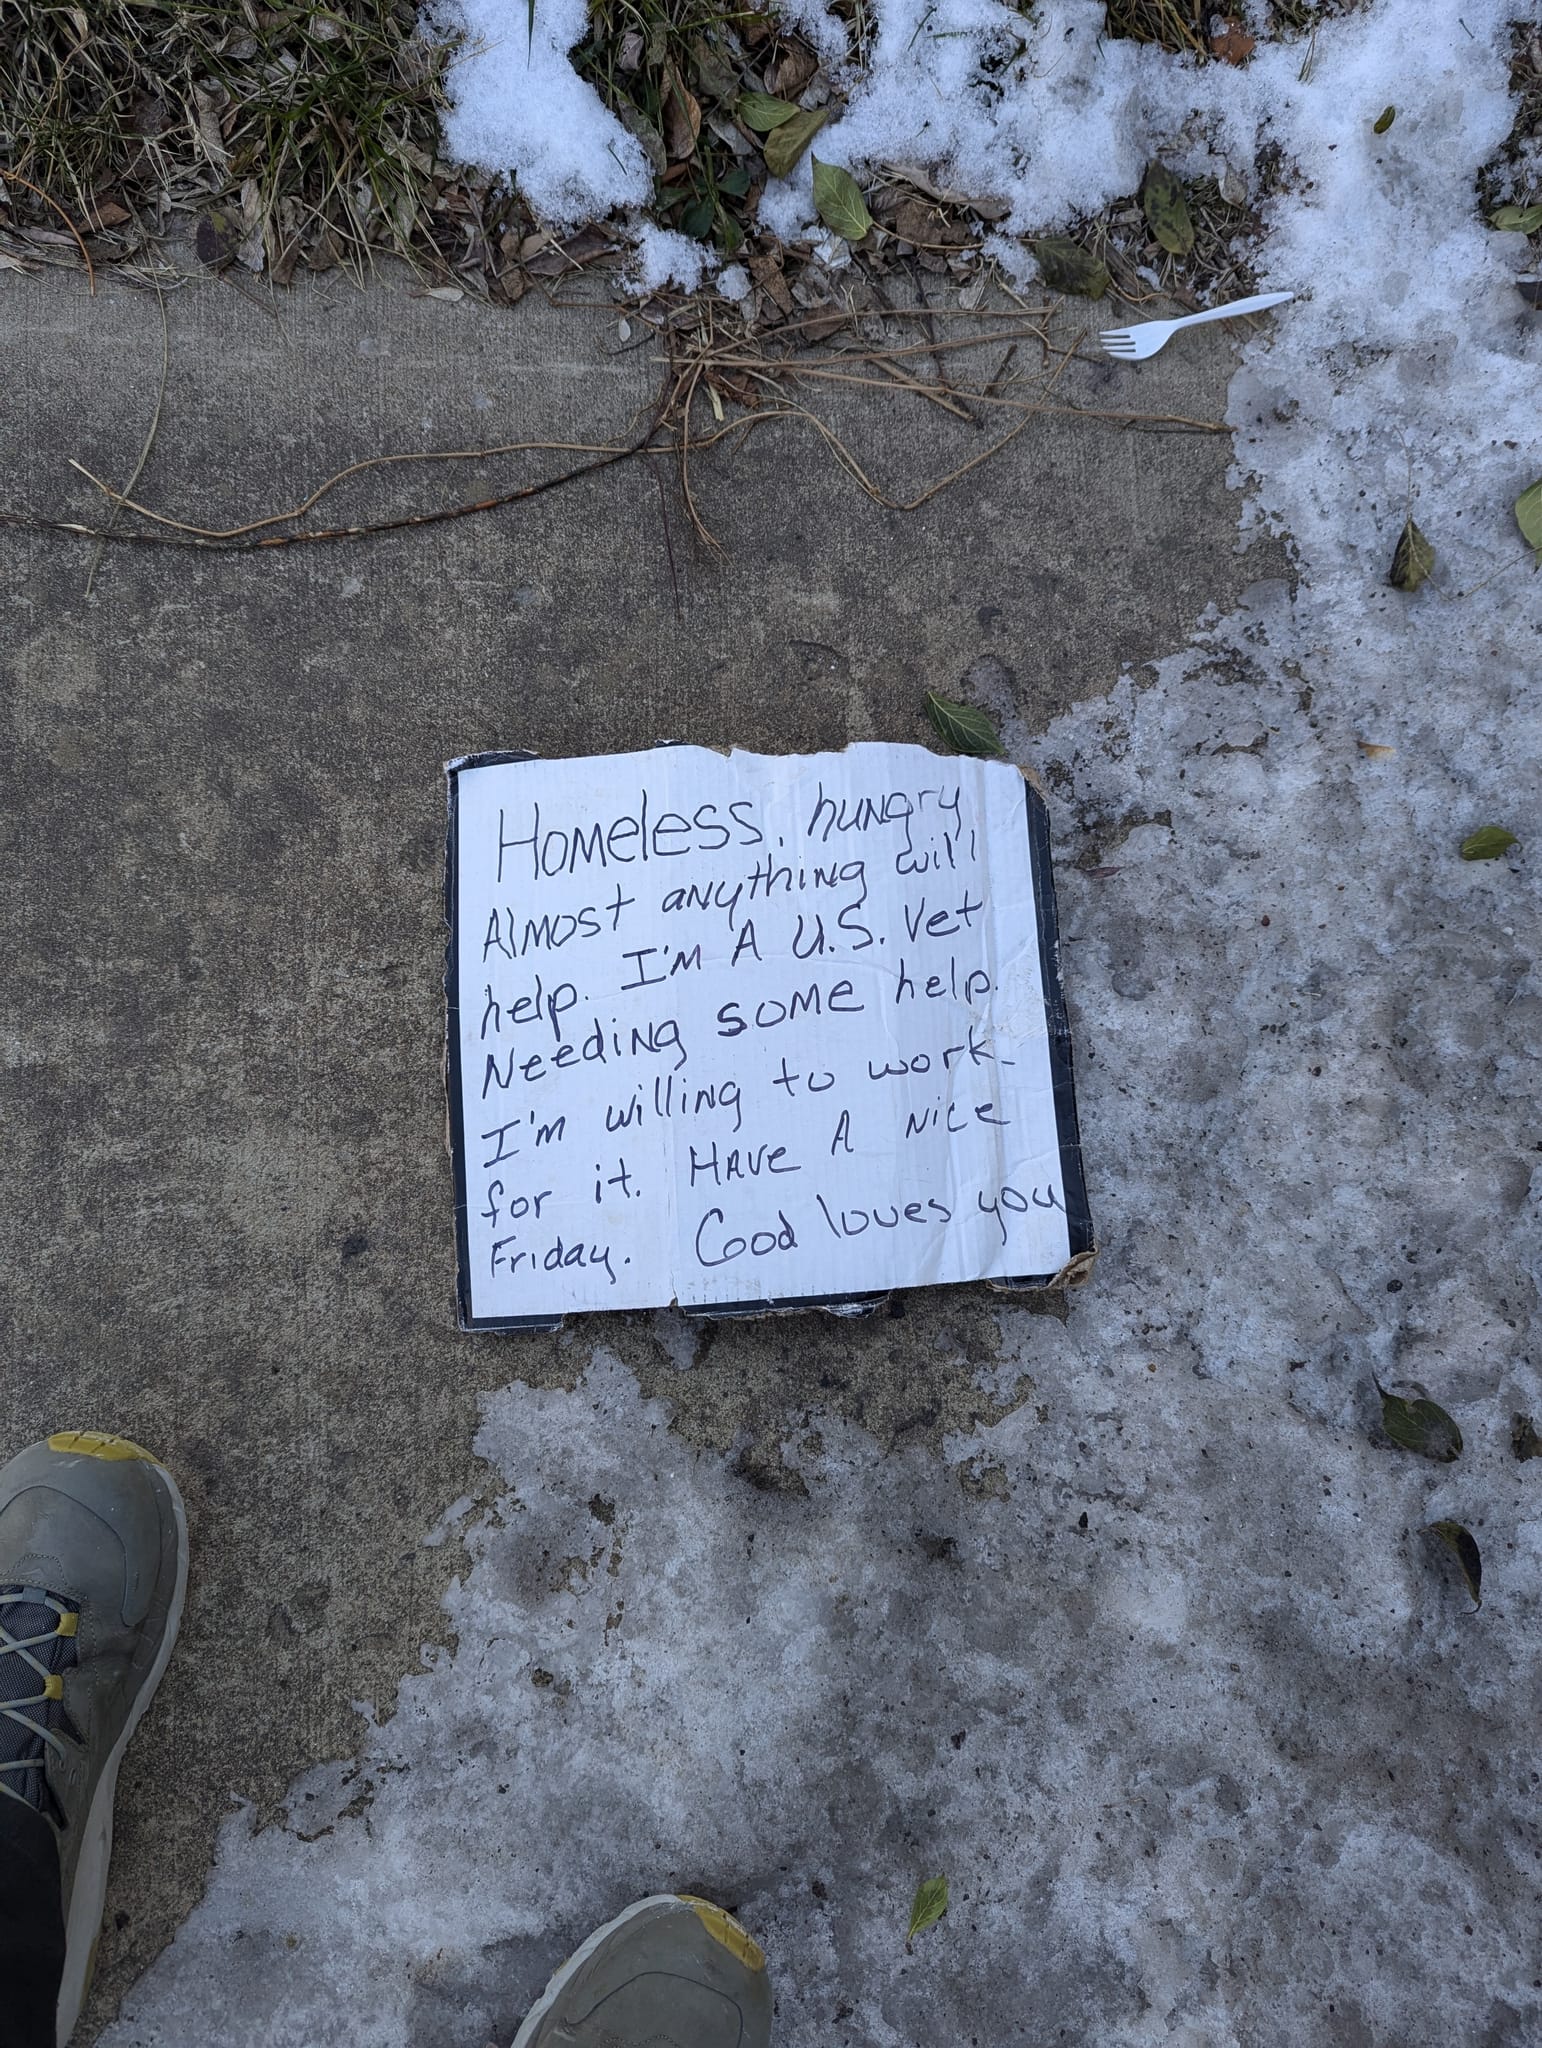 Homeless, hungry
Almost anything will
help. I'm A U.S. Vet
Needing some help.
I'm willing to work
for it. Have A Nice
Friday. God loves you